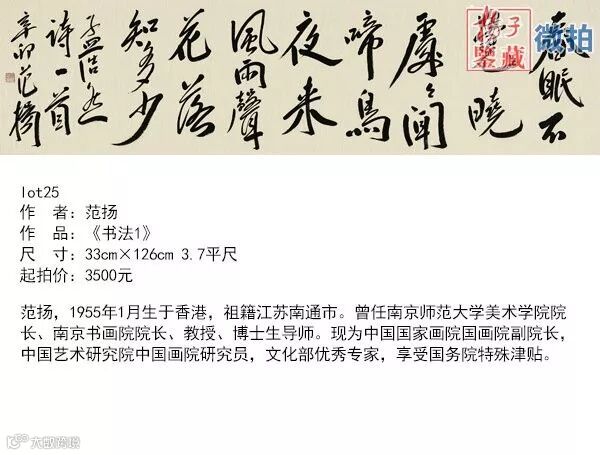 春眠不
覺曉
處々聞
啼鳥
夜来
風雨聲
花落
知多少
孟浩然
诗一首
辛卯范揚
子
鉴藏
微拍
lot25
作 者：范扬
作 品：《书法1》
尺 寸：33cm×126cm 3.7平尺
起拍价：3500元
范扬，1955年1月生于香港，祖籍江苏南通市。曾任南京师范大学美术学院院
长、南京书画院院长、教授、博士生导师。现为中国国家画院国画院副院长，
中国艺术研究院中国画院研究员，文化部优秀专家，享受国务院特殊津贴。